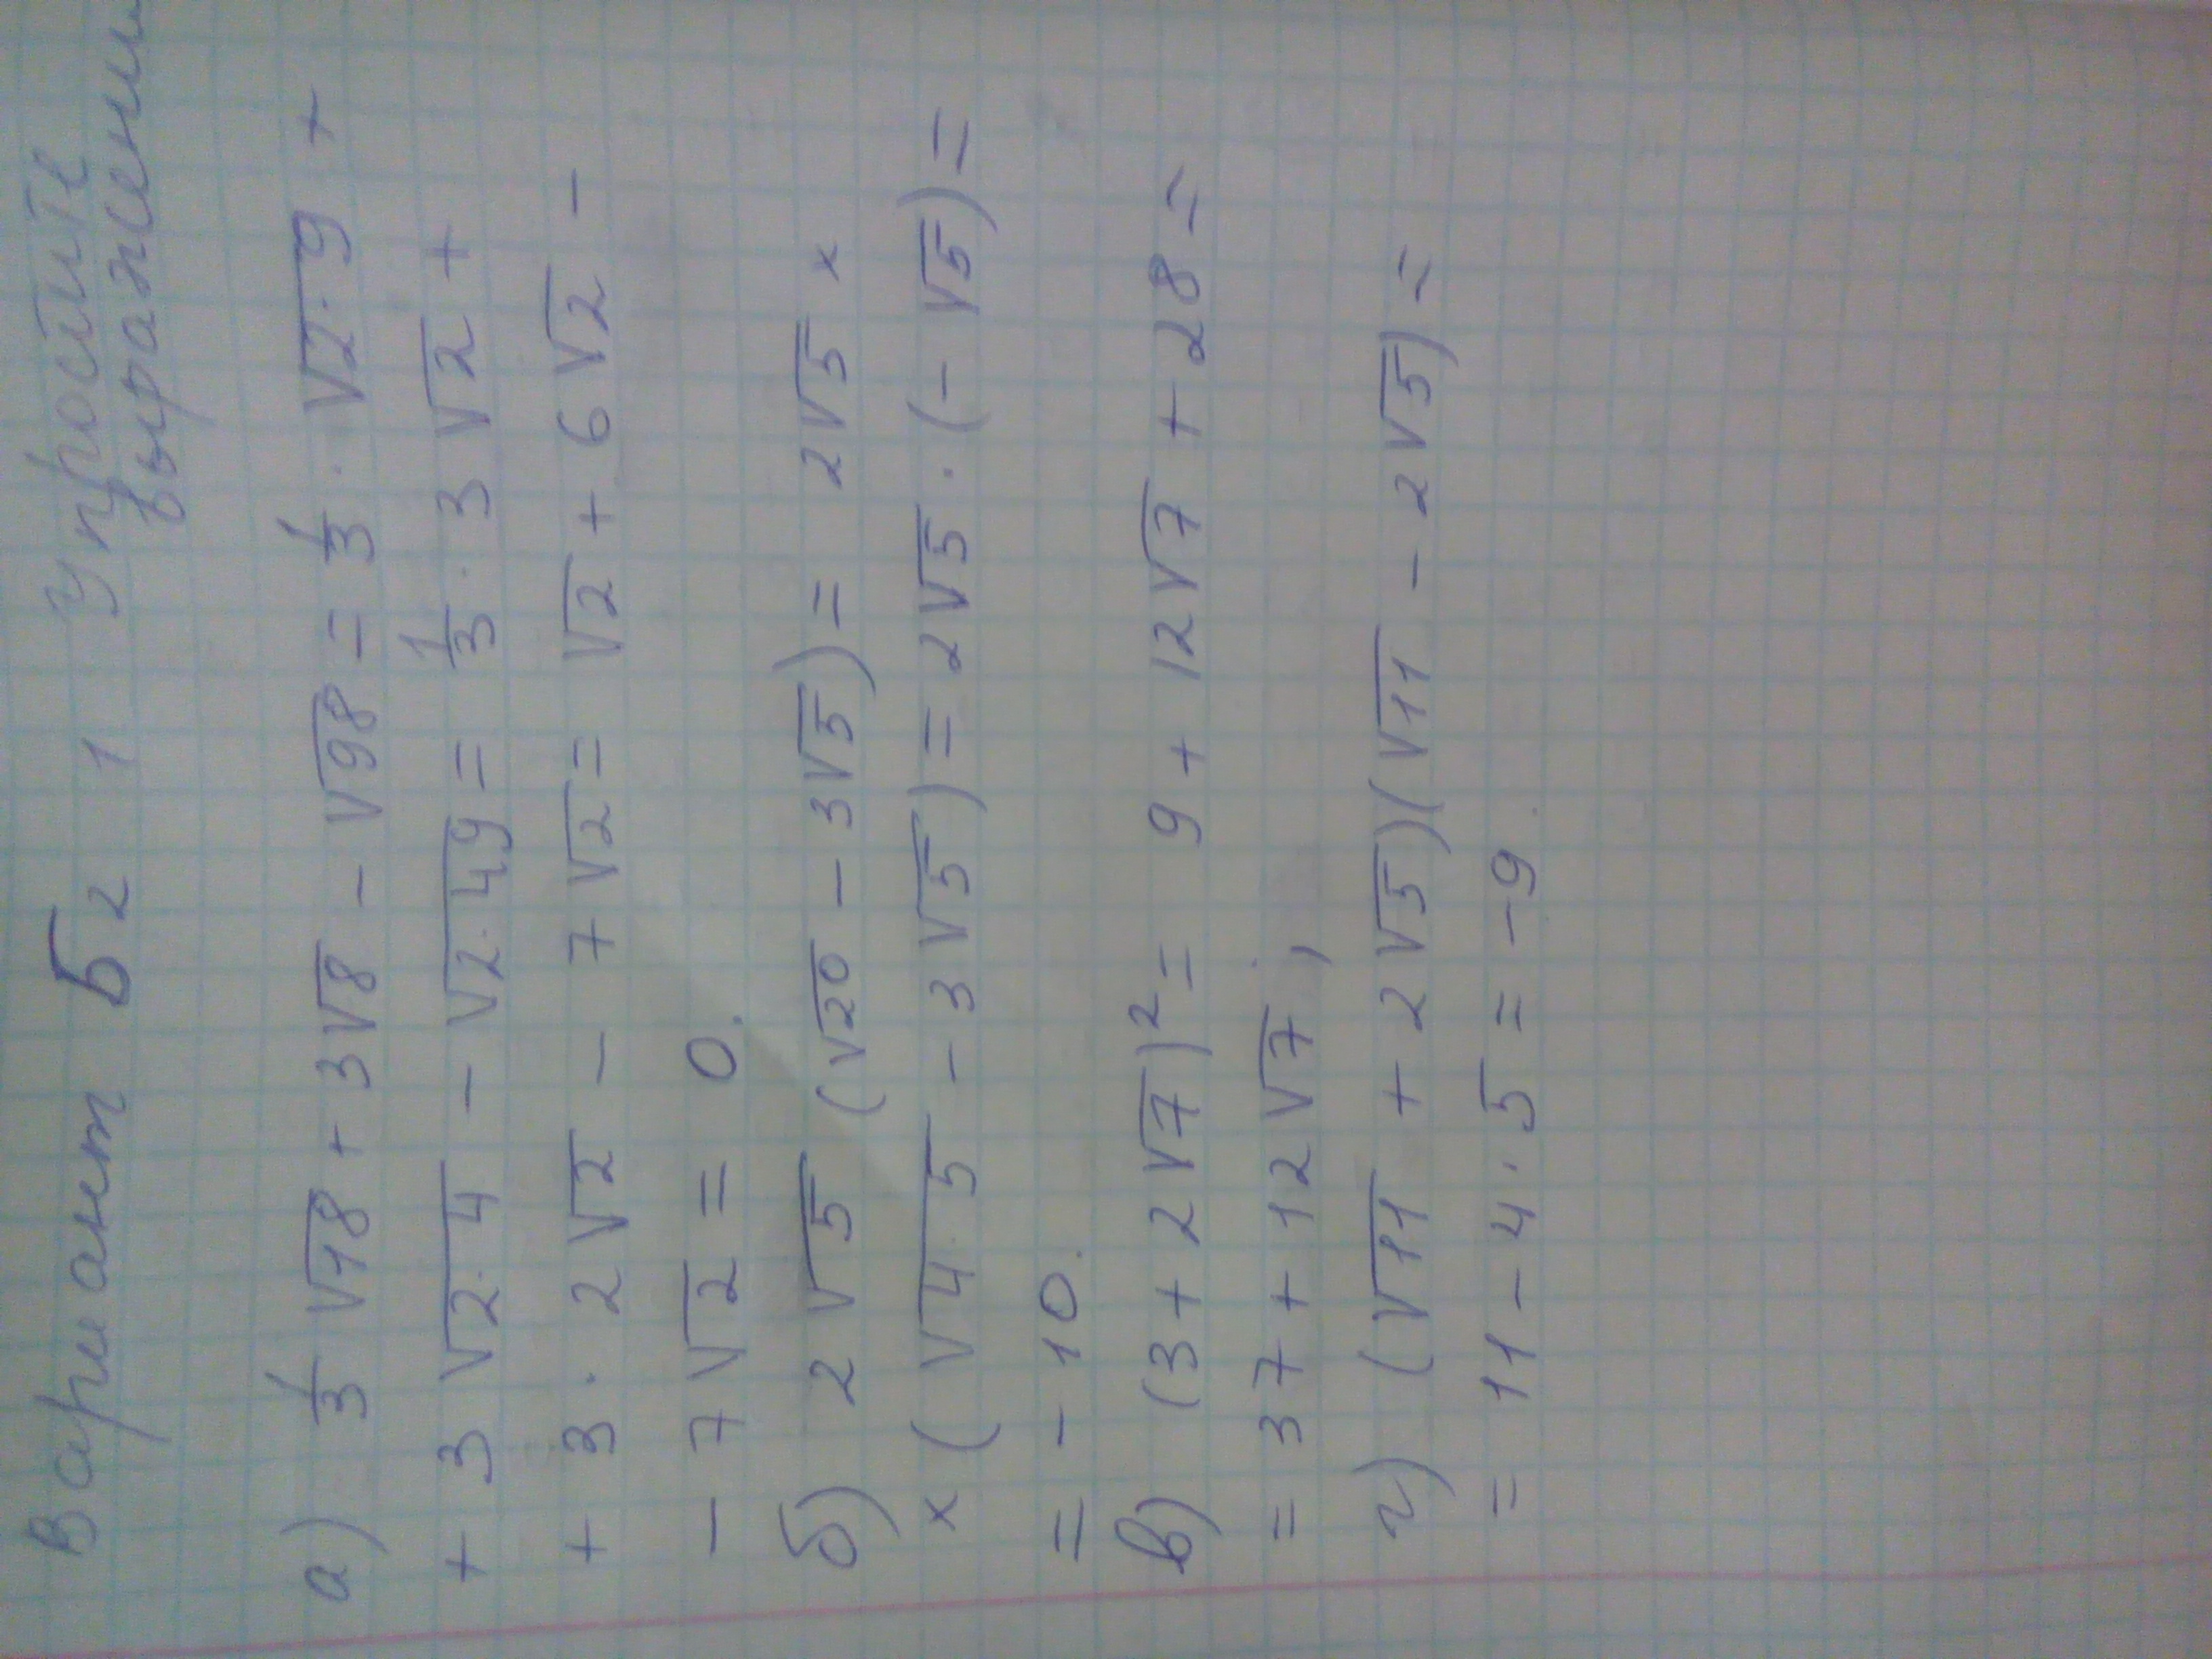 Вариант Б2 1 Упростите
выражени
а) 1/3 √18 + 3√8 - √98 = 1/3 · √2·9 +
+ 3 √2·4 - √2·49 = 1/3 · 3 √2 +
+ 3 · 2√2 - 7√2 = √2 + 6√2 -
- 7√2 = 0.
б) 2√5 (√20 - 3√5) = 2√5 ×
× (√4·5 - 3√5) = 2√5 · (-√5) =
= -10.
в) (3 + 2√7)² = 9 + 12√7 + 28 =
= 37 + 12√7;
г) (√11 + 2√5)(√11 - 2√5) =
= 11 - 4·5 = -9.